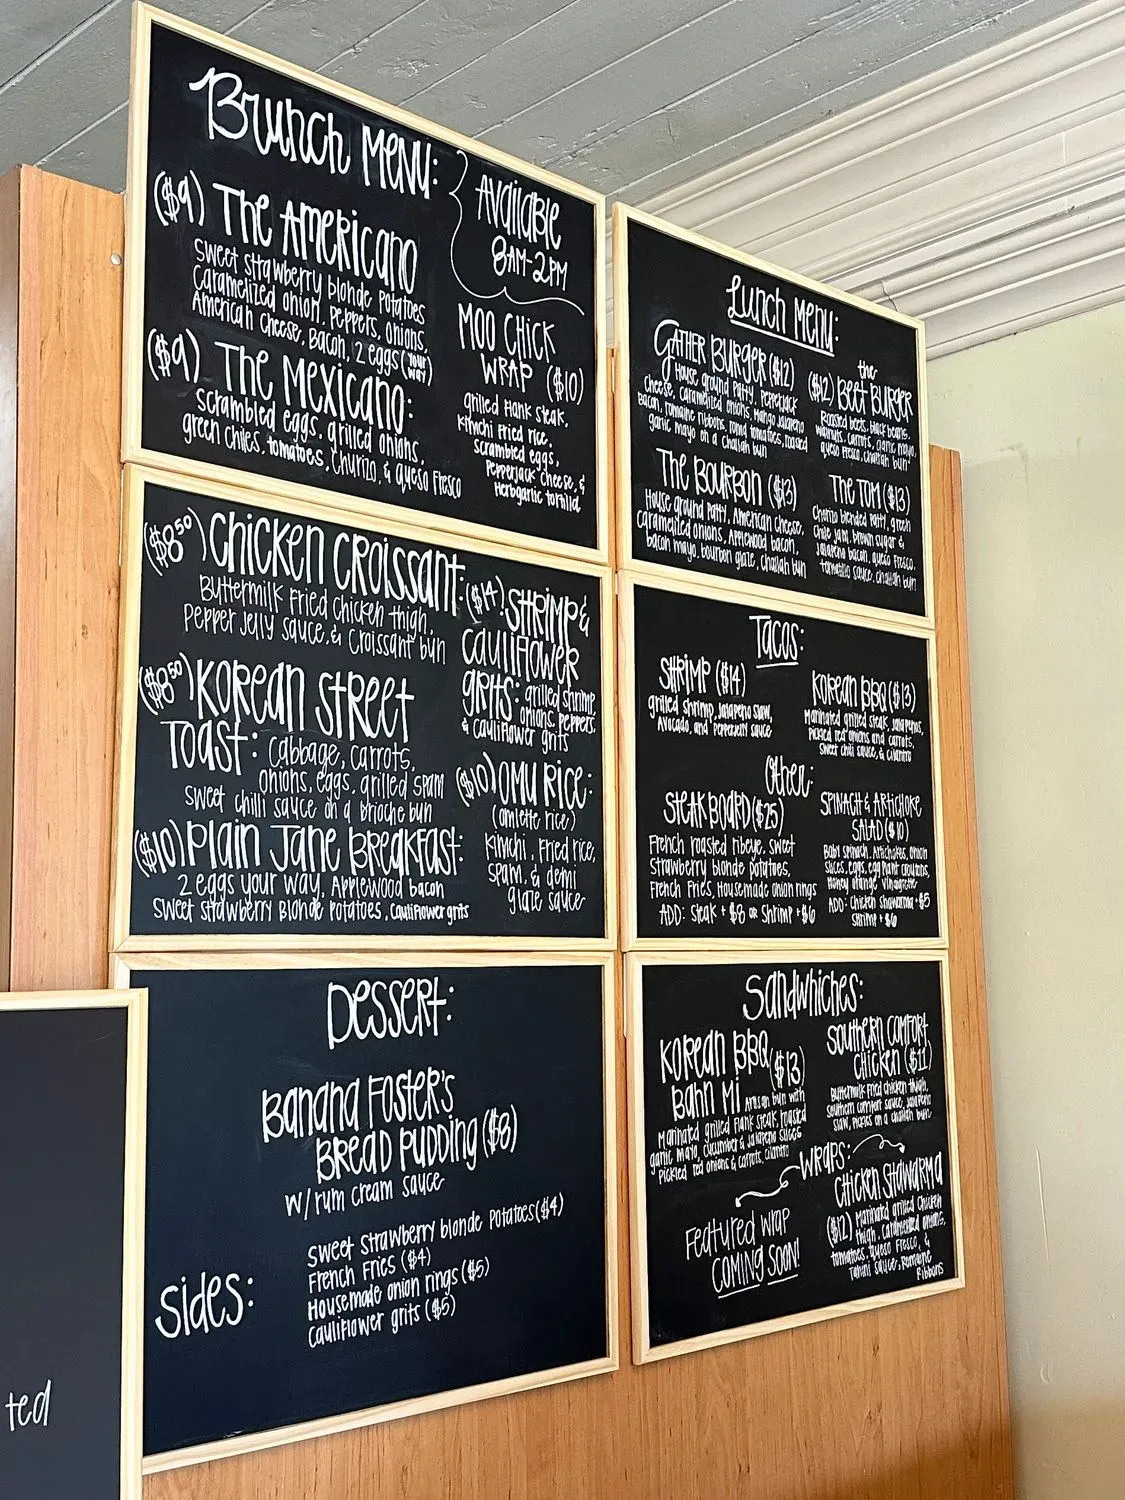 Brunch Menu:
Available
8AM-2PM
($9) The Americano
Sweet strawberry blonde potatoes
Caramelized onion, peppers, onions,
American cheese, bacon, 2 eggs (your way)
($9) The Mexicano:
scrambled eggs, grilled onions,
green chiles, tomatoes, churizo, & queso fresco
Moo Chick
Wrap ($10)
grilled flank steak,
Kimchi fried rice,
Scrambled eggs,
Pepperjack cheese, &
Herbgarlic tortilla
($8.50) Chicken Croissant:
Buttermilk fried chicken thigh,
Pepper jelly sauce, & Croissant bun
($8.50) Korean Street
Toast: Cabbage, carrots,
onions, eggs, grilled spam
sweet chilli sauce on a brioche bun
($10) Plain Jane Breakfast:
2 eggs your way, Applewood bacon
sweet strawberry blonde potatoes, cauliflower grits
($14) Shrimp &
Cauliflower
Grits: grilled shrimp,
onions, peppers,
& cauliflower grits
($10) Omu Rice:
(omlette rice)
Kimchi, fried rice,
spam, & demi
glaze sauce
Dessert:
Banana Foster's
Bread Pudding ($8)
w/ rum cream sauce
Sides:
Sweet strawberry blonde potatoes ($4)
French Fries ($4)
Housemade onion rings ($5)
Cauliflower grits ($5)
ted
Lunch Menu:
Gather Burger ($12)
House ground patty, pepperjack
cheese, caramelized onions, mango jalapeno
bacon, romaine ribbons, roma tomatoes, roasted
garlic mayo on a challah bun
the
($12) Beet Burger
Roasted beets, black beans,
walnuts, carrots, garlic mayo,
queso fresco, challah bun
The Bourbon ($13)
House ground patty, American cheese,
caramelized onions, Applewood bacon,
bacon mayo, bourbon glaze, challah bun
The Tom ($13)
Churizo blended patty, green
chile jam, brown sugar &
jalapeno bacon, queso fresco,
tomatillo sauce, challah bun
Tacos:
Shrimp ($14)
grilled shrimp, jalapeno slaw,
Avocado, and pepperjelly sauce
Korean BBQ ($13)
Marinated grilled steak, jalapenos,
Pickled red onions and carrots,
sweet chili sauce, & cilantro
Other:
Steak Board ($25)
French roasted ribeye, sweet
strawberry blonde potatoes,
French Fries, Housemade onion rings
ADD: Steak + $8 or Shrimp + $6
Spinach & Artichoke
Salad ($10)
Baby spinach, Artichokes, onion
slices, eggs, eggplant croutons,
Honey orange vinaigrette
ADD: Chicken shawarma + $5
Shrimp + $6
Sandwhiches:
Korean BBQ ($13)
Bahn Mi Artisan bun with
Marinated grilled flank steak, roasted
garlic mayo, cucumber & jalapeno slices
Pickled red onions & carrots, cilantro
Southern Comfort
Chicken ($11)
Buttermilk fried chicken thigh,
southern comfort sauce, jalapeno
slaw, pickles on a challah bun
Wraps:
Featured Wrap
COMING SOON!
Chicken Shawarma
($12) Marinated grilled chicken
thigh, caramelized onions,
tomatoes, queso fresco, &
Tahini sauce, Romaine
Ribbons